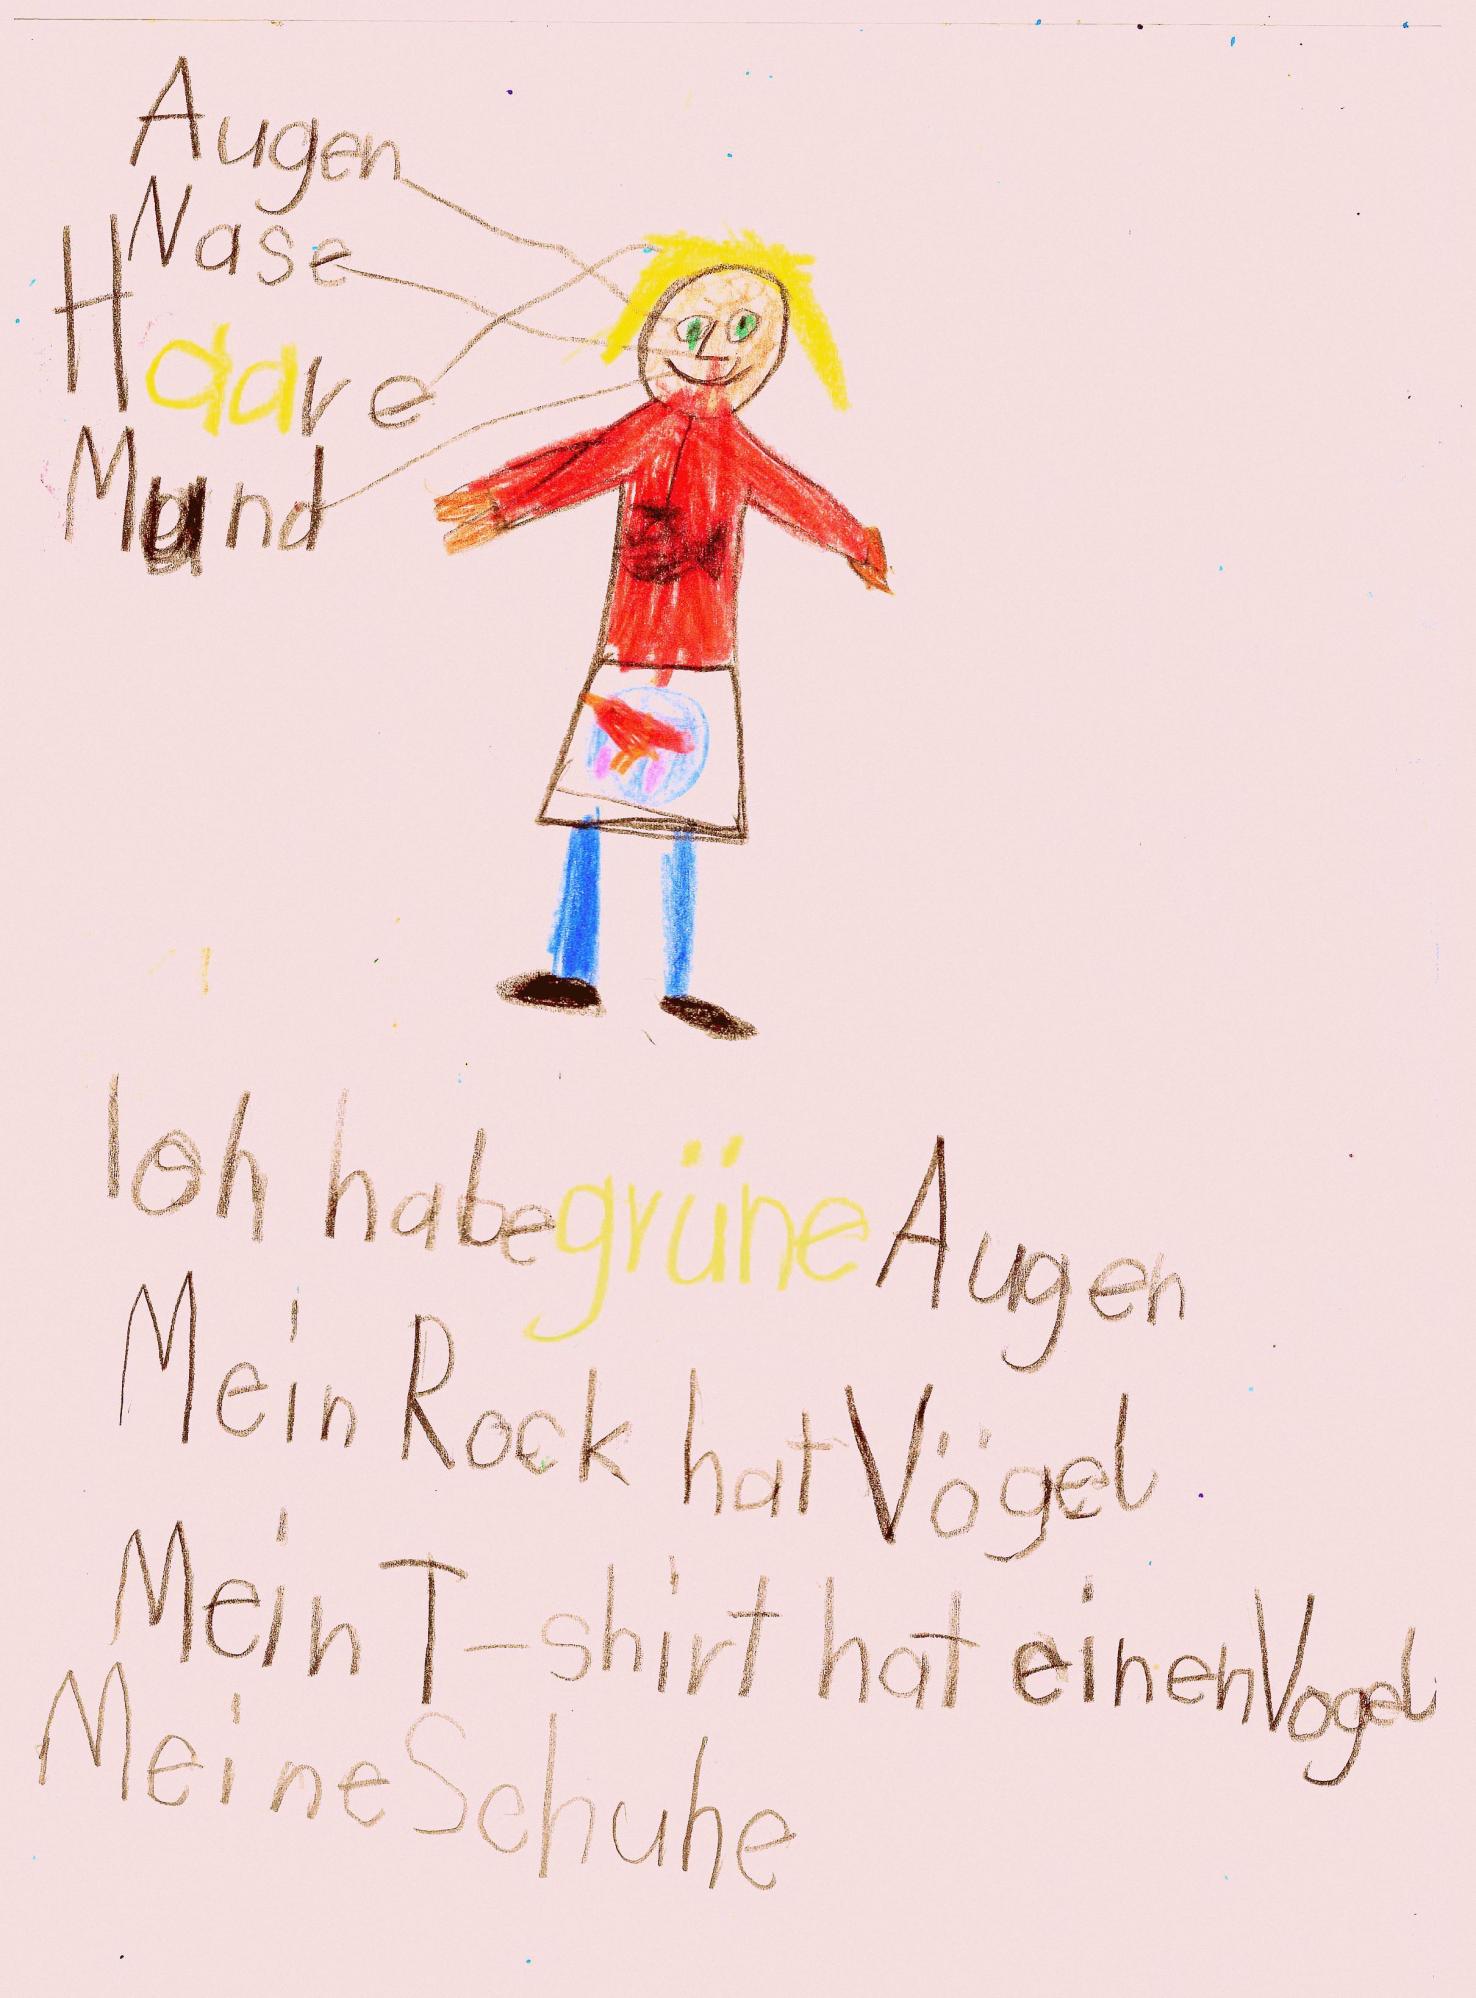 Augen
Nase
Haare
Mund
Ich habe grüne Augen
Mein Rock hat Vögel
Mein T-shirt hat einen Vogel
Meine Schuhe